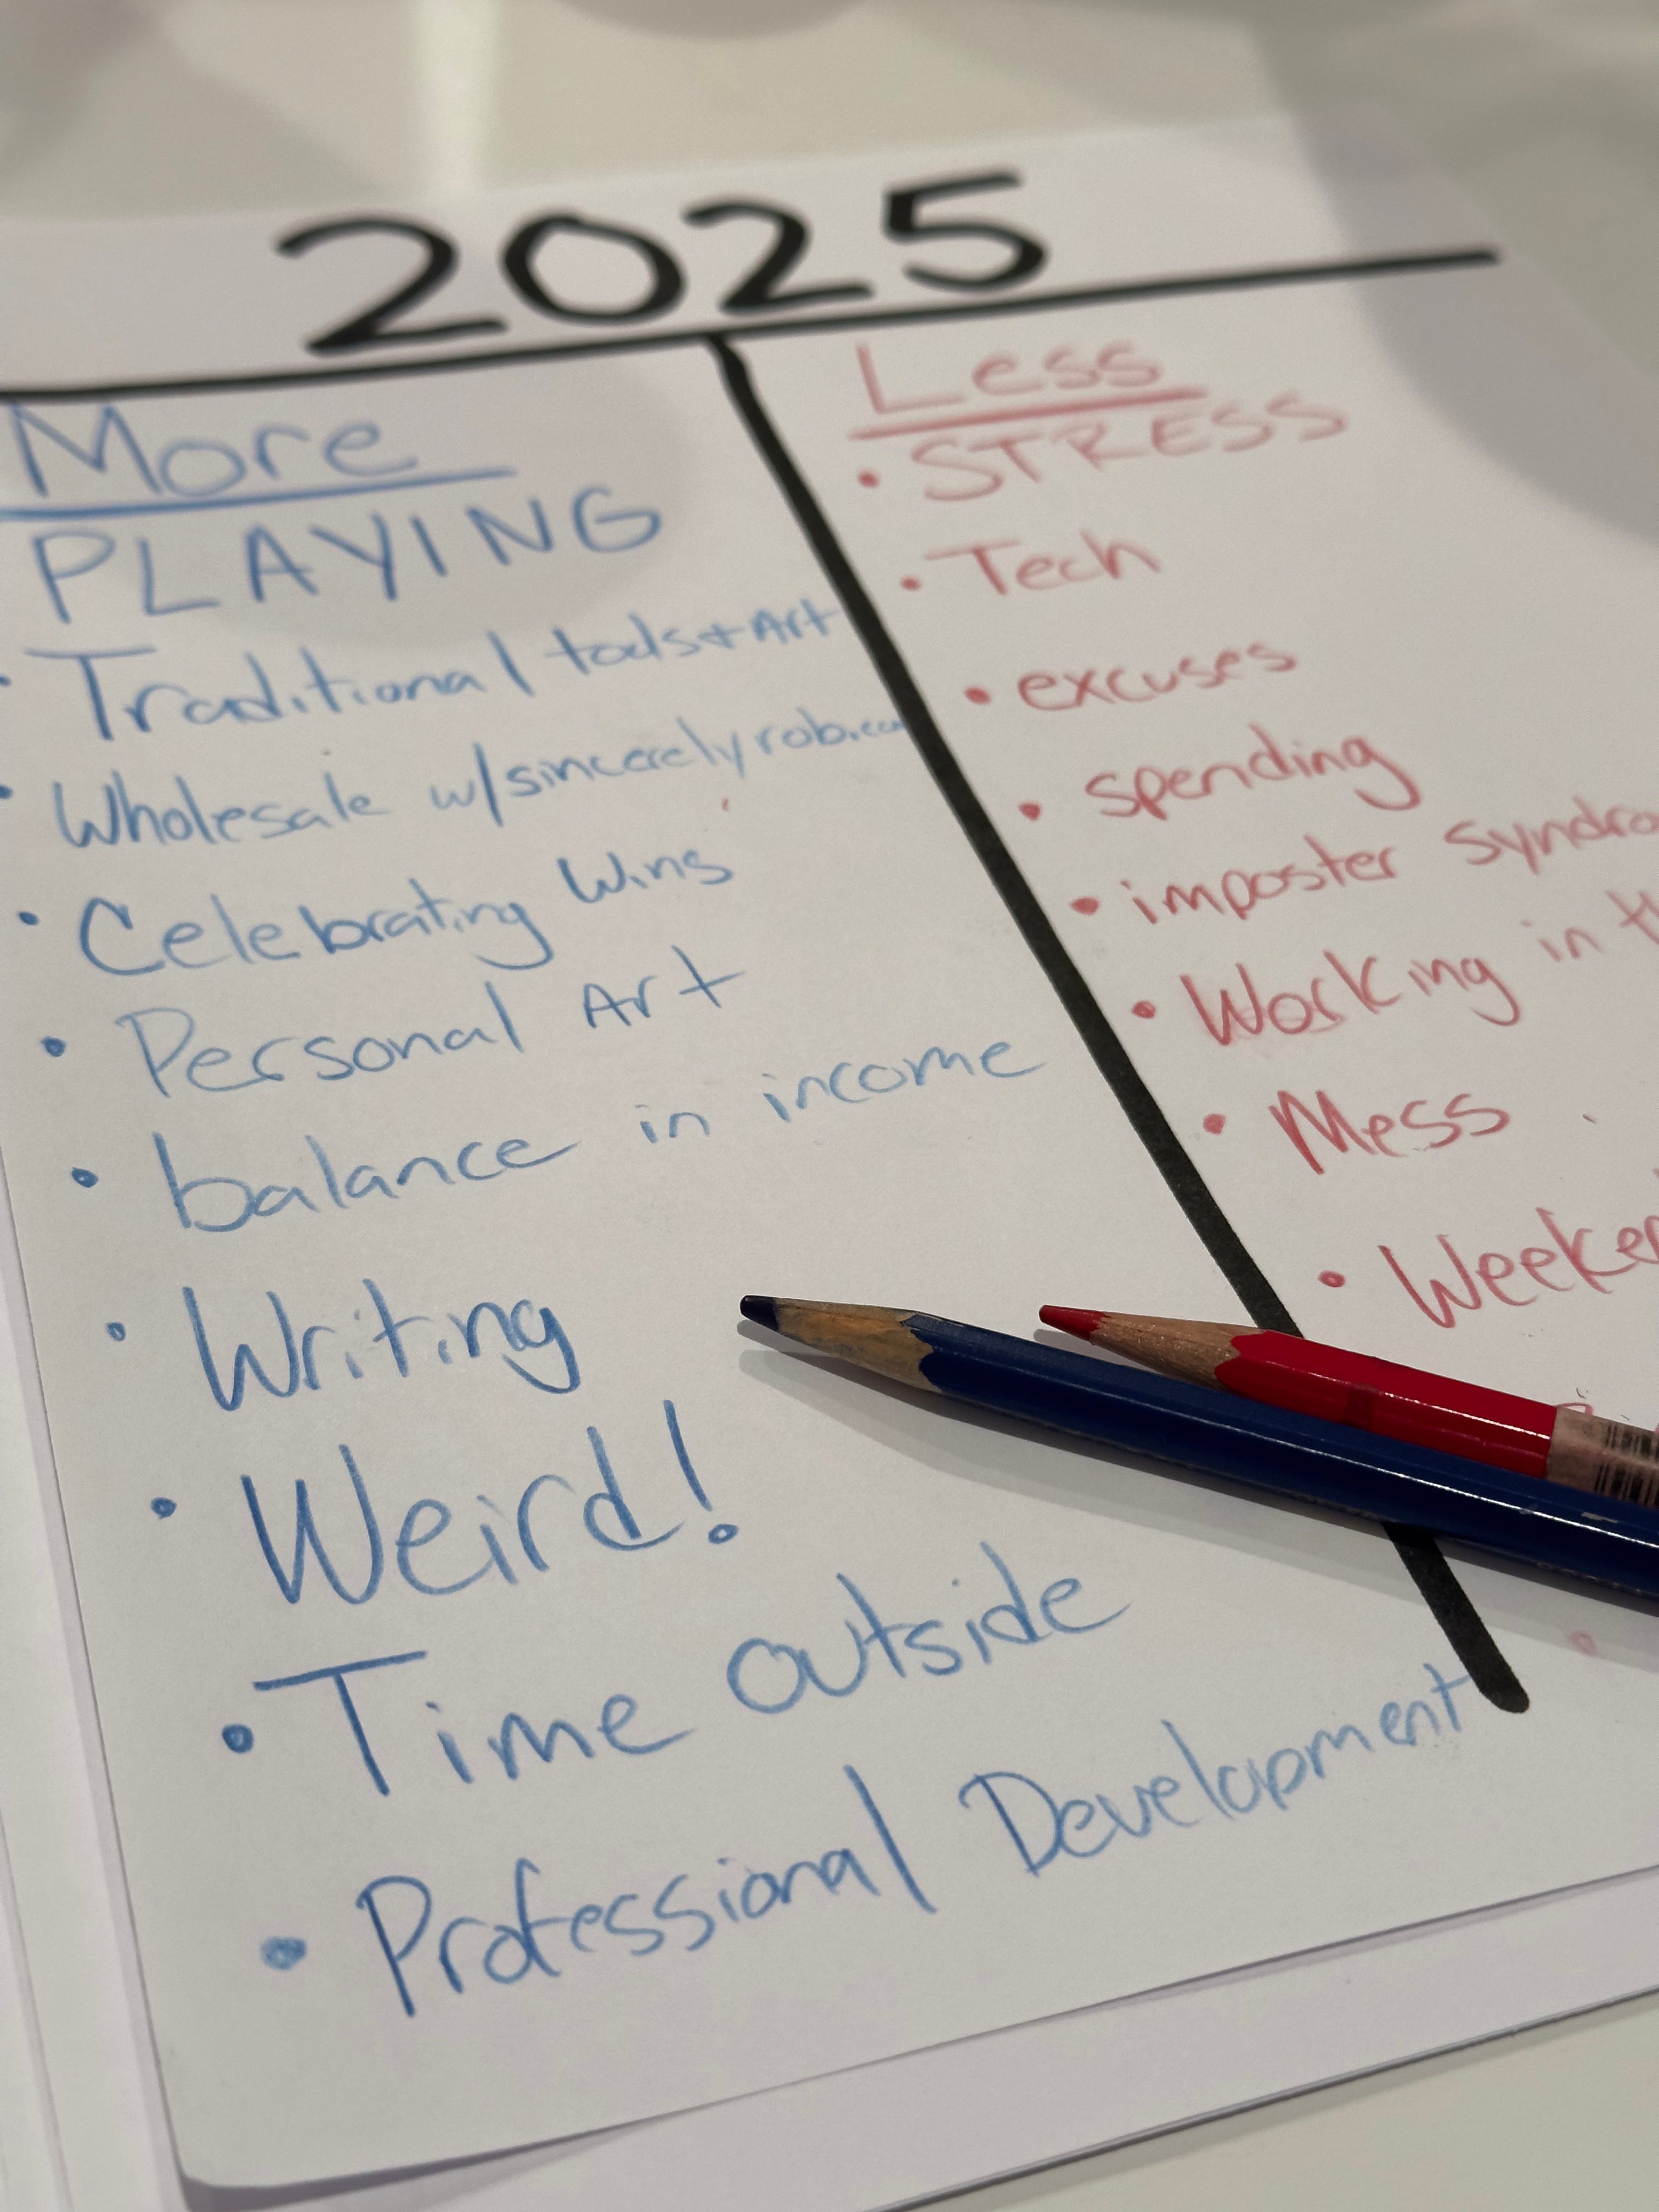 2025
More
PLAYING
• Traditional tools + Art
• Wholesale w/sincerelyrob.com
• Celebrating Wins
• Personal Art
• balance in income
• Writing
• Weird!
• Time outside
• Professional Development
Less
• STRESS
• Tech
• excuses
• spending
• imposter
• Working in
• Mess